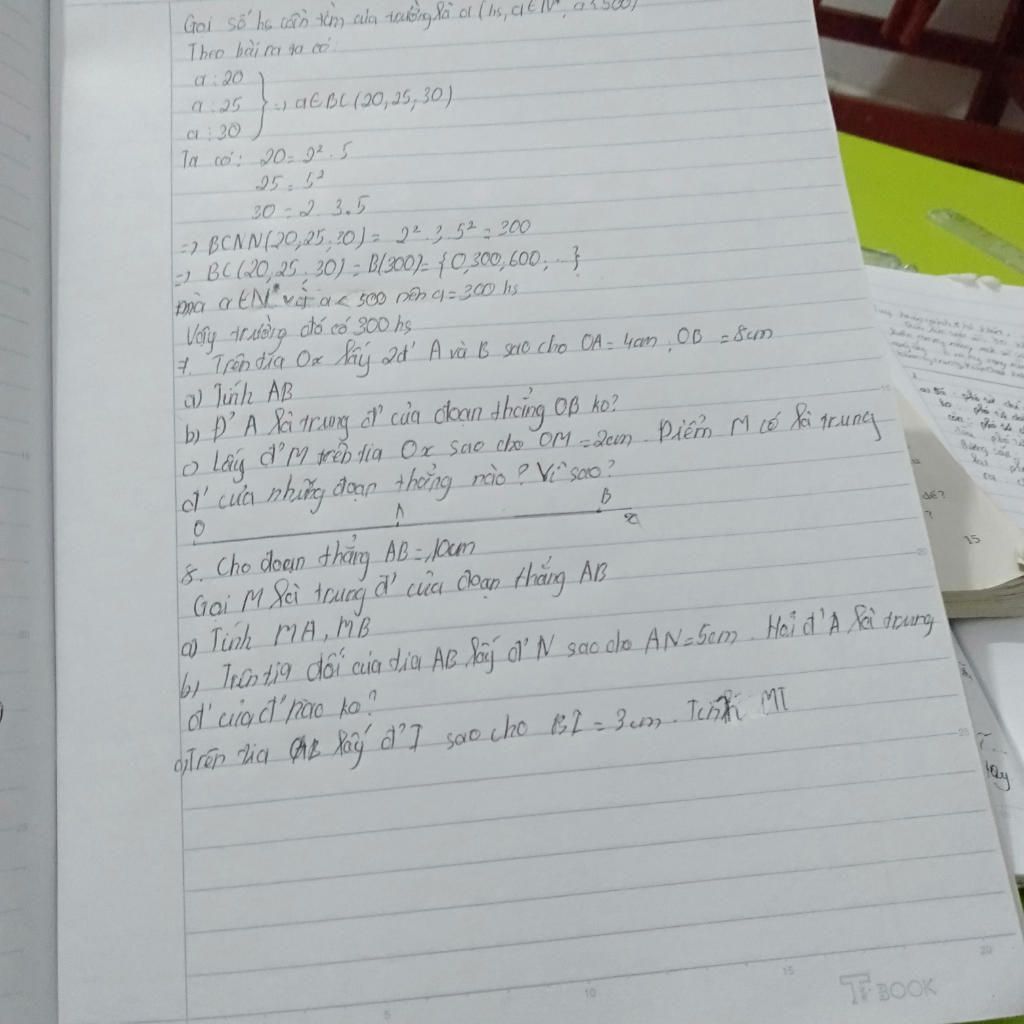 Gọi số hs cần tìm của trường là a (hs, a ∈ N*, a < 500)
Theo bài ra ta có:
a : 20
a : 25 } => a ∈ BC(20, 25, 30)
a : 30
Ta có: 20 = 2² . 5
25 = 5²
30 = 2 . 3 . 5
=> BCNN(20, 25, 30) = 2² . 3 . 5² = 300
=> BC(20, 25, 30) = B(300) = {0, 300, 600; ...}
mà a ∈ N* và a < 500 nên a = 300 hs
Vậy trường đó có 300 hs
7. Trên tia Ox lấy 2đ' A và B sao cho OA = 4cm, OB = 8cm
a) Tính AB
b) Đ' A là trung đ' của đoạn thẳng OB ko?
c) Lấy đ' M trên tia Ox sao cho OM = 2cm. Điểm M có là trung
đ' của những đoạn thẳng nào? Vì sao?
O A B x
8. Cho đoạn thẳng AB = 10cm
Gọi M là trung đ' của đoạn thẳng AB
a) Tính MA, MB
b) Trên tia đối của tia AB lấy đ' N sao cho AN = 5cm. Hỏi đ' A là trung
đ' của đ' nào ko?
c) Trên tia AB lấy đ' I sao cho BI = 3cm. Tính MI
5 10 15 20
TF BOOK
15